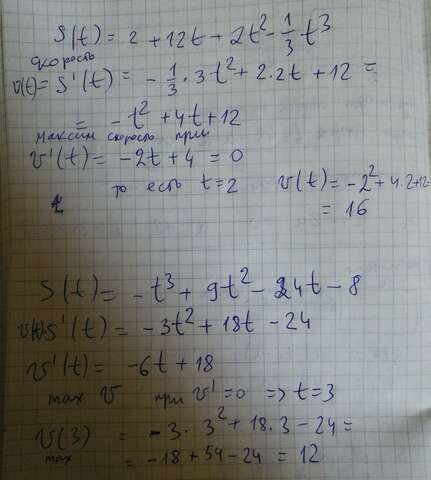 S(t) = 2 + 12t + 2t² - 1/3 t³
скорость
v(t) = S'(t) = - 1/3 · 3t² + 2·2t + 12 =
= -t² + 4t + 12
максим скорость при
v'(t) = -2t + 4 = 0
то есть t = 2 v(t) = -2² + 4·2+12
= 16
S(t) = -t³ + 9t² - 24t - 8
v(t)=S'(t) = -3t² + 18t - 24
v'(t) = -6t + 18
max v при v' = 0 => t = 3
v(3) = -3 · 3² + 18·3 - 24 =
max = -18 + 54 - 24 = 12